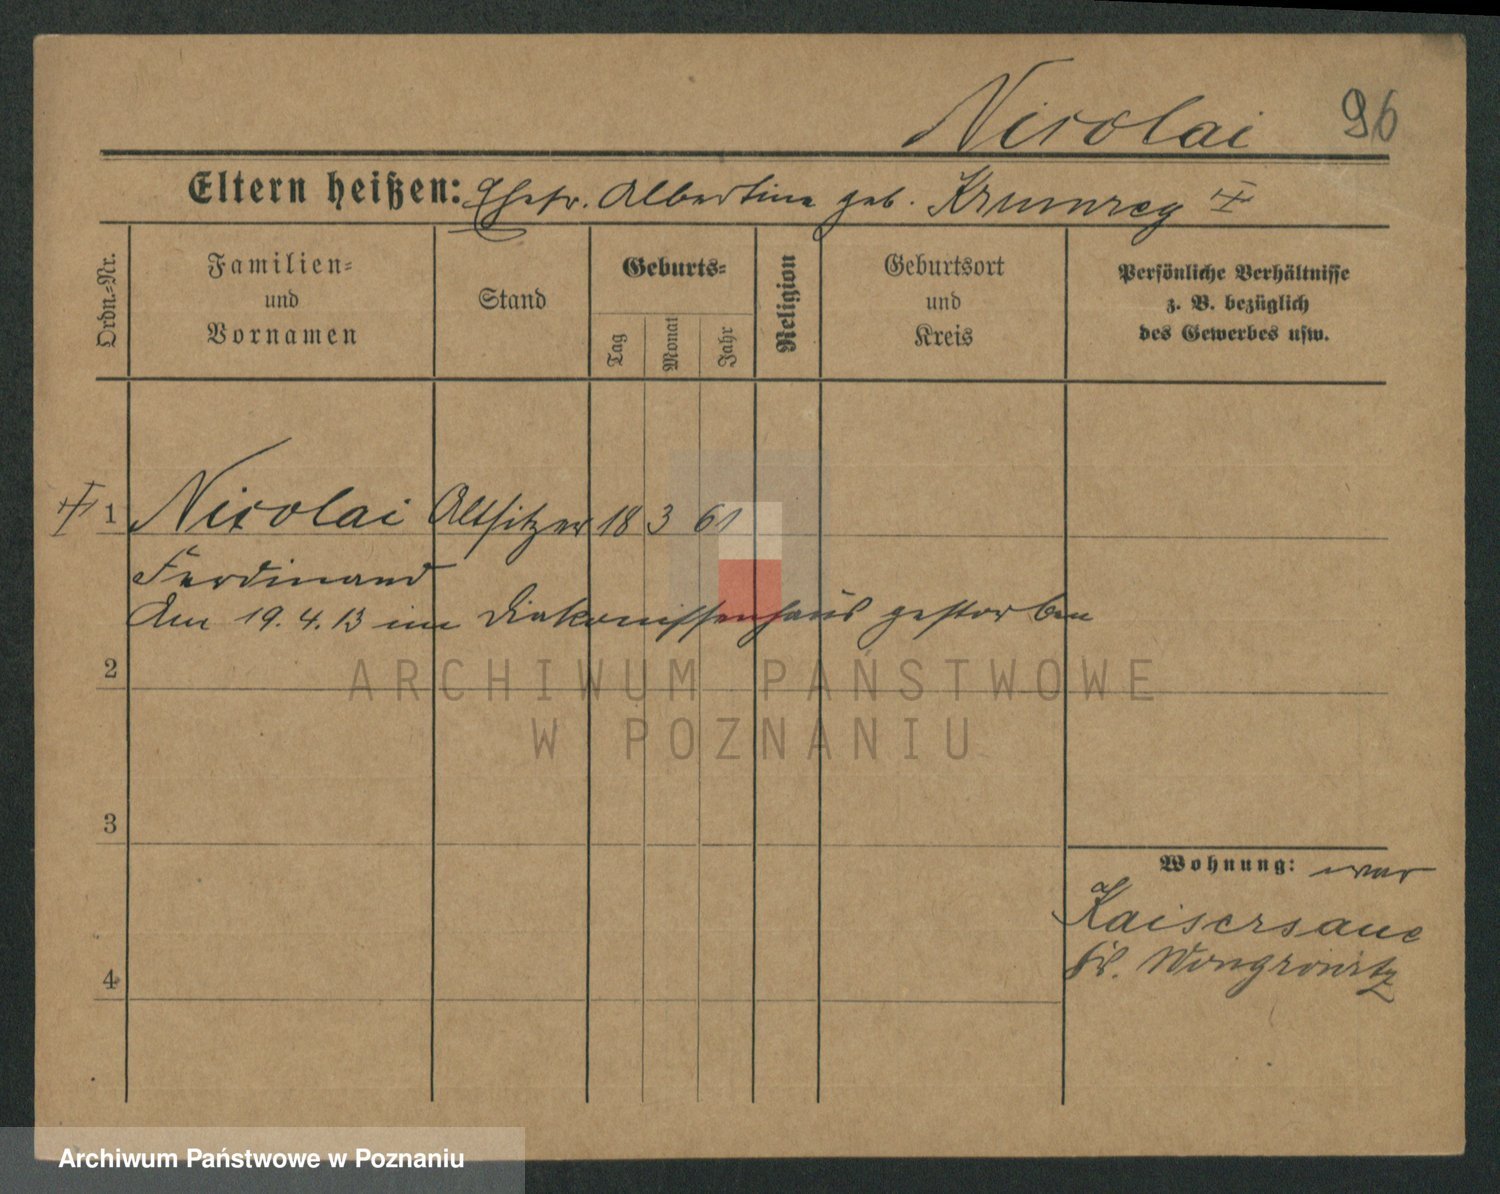 Nicolai 96
Eltern heißen: Ehefr. Albertine geb. Krumrey
Ordn.-Nr.
Familien-
und
Vornamen
Stand
Geburts-
Tag
Monat
Jahr
Religion
Geburtsort
und
Kreis
Persönliche Verhältnisse
z. B. bezüglich
des Gewerbes usw.
1 Nicolai Altsitzer 18 3 61
Ferdinand
Am 19.4.13 im Diakonissenhaus gestorben
2
ARCHIWUM PAŃSTWOWE
W POZNANIU
3
Wohnung: war
Kaisersaue
Kr. Wongrowitz
4
Archiwum Państwowe w Poznaniu